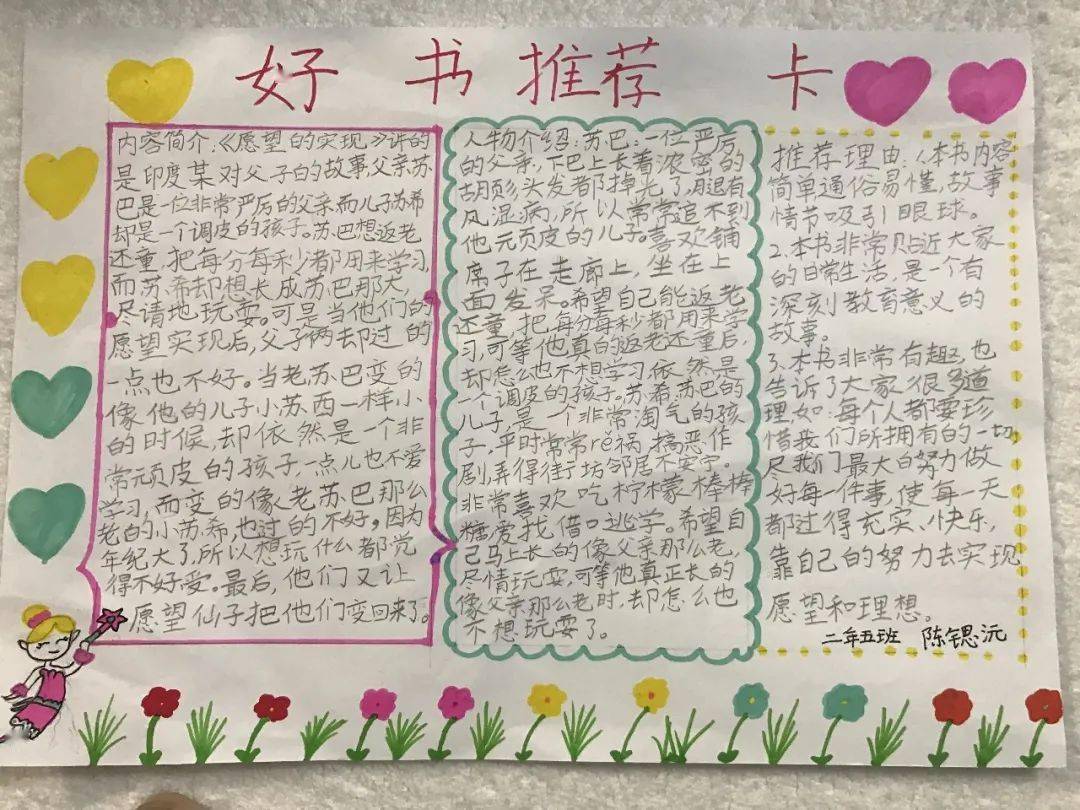 好书推荐卡
内容简介:《愿望的实现》讲的
是印度某对父子的故事,父亲苏
巴是一位非常严厉的父亲而儿子苏希
却是一个调皮的孩子。苏巴想返老
还童,把每分每秒都用来学习,
而苏希却想长成苏巴那大,
尽请地玩耍。可是当他们的
愿望实现后,父子俩去却过的
一点也不好。当老苏巴变的
像他的儿子小苏西一样小
的时候,却依然是一个非
常顽皮的孩子,一点儿也不爱
学习,而变的像老苏巴那么
老的小苏希,也过的不好。因为
年纪大了,所以想玩什么都觉
得不好爱。最后,他们又让
愿望仙子把他们变回来了。
人物介绍:苏巴:一位严厉
的父亲,下巴上长着浓密的
胡须,头发都掉光了,腿有
风湿病,所以常常追不到
他顽皮的儿子。喜欢铺
席子在走廊上,坐在上
面发呆。希望自己能返老
还童,把每分每秒都用来学
习,可等他真的返老还童后,
却怎么也不想学习依然是
一个调皮的孩子。苏希:苏巴的
儿子,是一个非常淘气的孩
子,平时常常rě祸,搞恶作
剧弄得街坊邻居不安宁。
非常喜欢吃柠檬棒棒
糖,爱找借口逃学。希望自
己马上长的像父亲那么老,
尽情玩耍,可等他真正长的
像父亲那么老时,却怎么也
不想玩耍了。
推荐理由:1.本书内容
简单通俗易懂,故事
情节吸引眼球。
2.本书非常贴近大家
的日常生活,是一个有
深刻教育意义的
故事。
3.本书非常有趣,也
告诉了大家很多道
理,如:每个人都要珍
惜我们所拥有的一切,
尽我们最大的努力做
好每一件事,使每一天
都过得充实、快乐,
靠自己的努力去实现
愿望和理想。
二年五班 陈锶沅